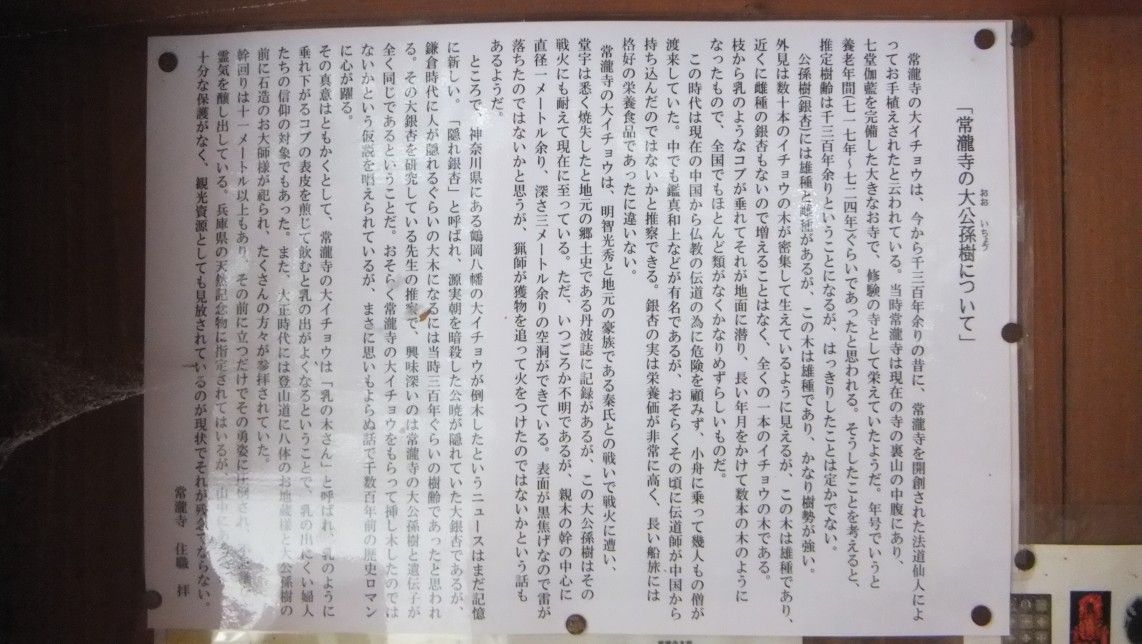 「常瀧寺の大公孫樹について」
おお いちょう
常瀧寺の大イチョウは、今から千三百年余りの昔に、常瀧寺を開創された法道仙人によ
ってお手植えされたと云われている。当時常瀧寺は現在の寺の裏山の中腹にあり、
七堂伽藍を完備した大きなお寺で、修験の寺として栄えていたようだ。年号でいうと
養老年間(七一七年～七二四年)ぐらいであったと思われる。そうしたことを考えると、
推定樹齢は千三百年余りということになるが、はっきりしたことは定かでない。
公孫樹(銀杏)には雄種と雌種があるが、この木は雄種であり、かなり樹勢が強い。
外見は数十本のイチョウの木が密集して生えているように見えるが、この木は雄種であり、
近くに雌種の銀杏もないので増えることはなく、全くの一本のイチョウの木である。
枝から乳のようなコブが垂れてそれが地面に潜り、長い年月をかけて数本の木のように
なったもので、全国でもほとんど類がなくかなりめずらしいものだ。
この時代は現在の中国から仏教の伝道の為に危険を顧みず、小舟に乗って幾人もの僧が
渡来していた。中でも鑑真和上などが有名であるが、おそらくその頃に伝道師が中国から
持ち込んだのではないかと推察できる。銀杏の実は栄養価が非常に高く、長い船旅には
格好の栄養食品であったに違いない。
常瀧寺の大イチョウは、明智光秀と地元の豪族である秦氏との戦いで戦火に遭い、
堂宇は悉く焼失したと地元の郷土史である丹波誌に記録があるが、この大公孫樹はその
戦火にも耐えて現在に至っている。ただ、いつごろか不明であるが、親木の幹の中心に
直径一メートル余り、深さ三メートル余りの空洞ができている。表面が黒焦げなので雷が
落ちたのではないかと思うが、猟師が獲物を追って火をつけたのではないかという話も
あるようだ。
ところで、神奈川県にある鶴岡八幡の大イチョウが倒木したというニュースはまだ記憶
に新しい。「隠れ銀杏」と呼ばれ、源実朝を暗殺した公暁が隠れていた大銀杏であるが、
鎌倉時代に人が隠れるぐらいの大木になるには当時三百年ぐらいの樹齢であったと思われ
る。その大銀杏を研究している先生の推察で、興味深いのは常瀧寺の大公孫樹と遺伝子が
全く同じであるということだ。おそらく常瀧寺の大イチョウをもらって挿し木したのでは
ないかという仮説を唱えられているが、まさに思いもよらぬ話で千数百年前の歴史ロマン
に心が躍る。
その真意はともかくとして、常瀧寺の大イチョウは「乳の木さん」と呼ばれ、乳のように
垂れ下がるコブの表皮を煎じて飲むと乳の出がよくなるということで、乳の出にくい婦人
たちの信仰の対象でもあった。また、大正時代には登山道に八体のお地蔵様と大公孫樹の
前に石造のお大師様が祀られ、たくさんの方々が参拝されていた。
幹回りは十一メートル以上もあり、その前に立つだけでその勇姿に圧倒され、
霊気を醸し出している。兵庫県の天然記念物に指定されてはいるが、山中にあ
十分な保護がなく、観光資源としても見放されているのが現状でそれが残念でならない。
常瀧寺 住職 拝